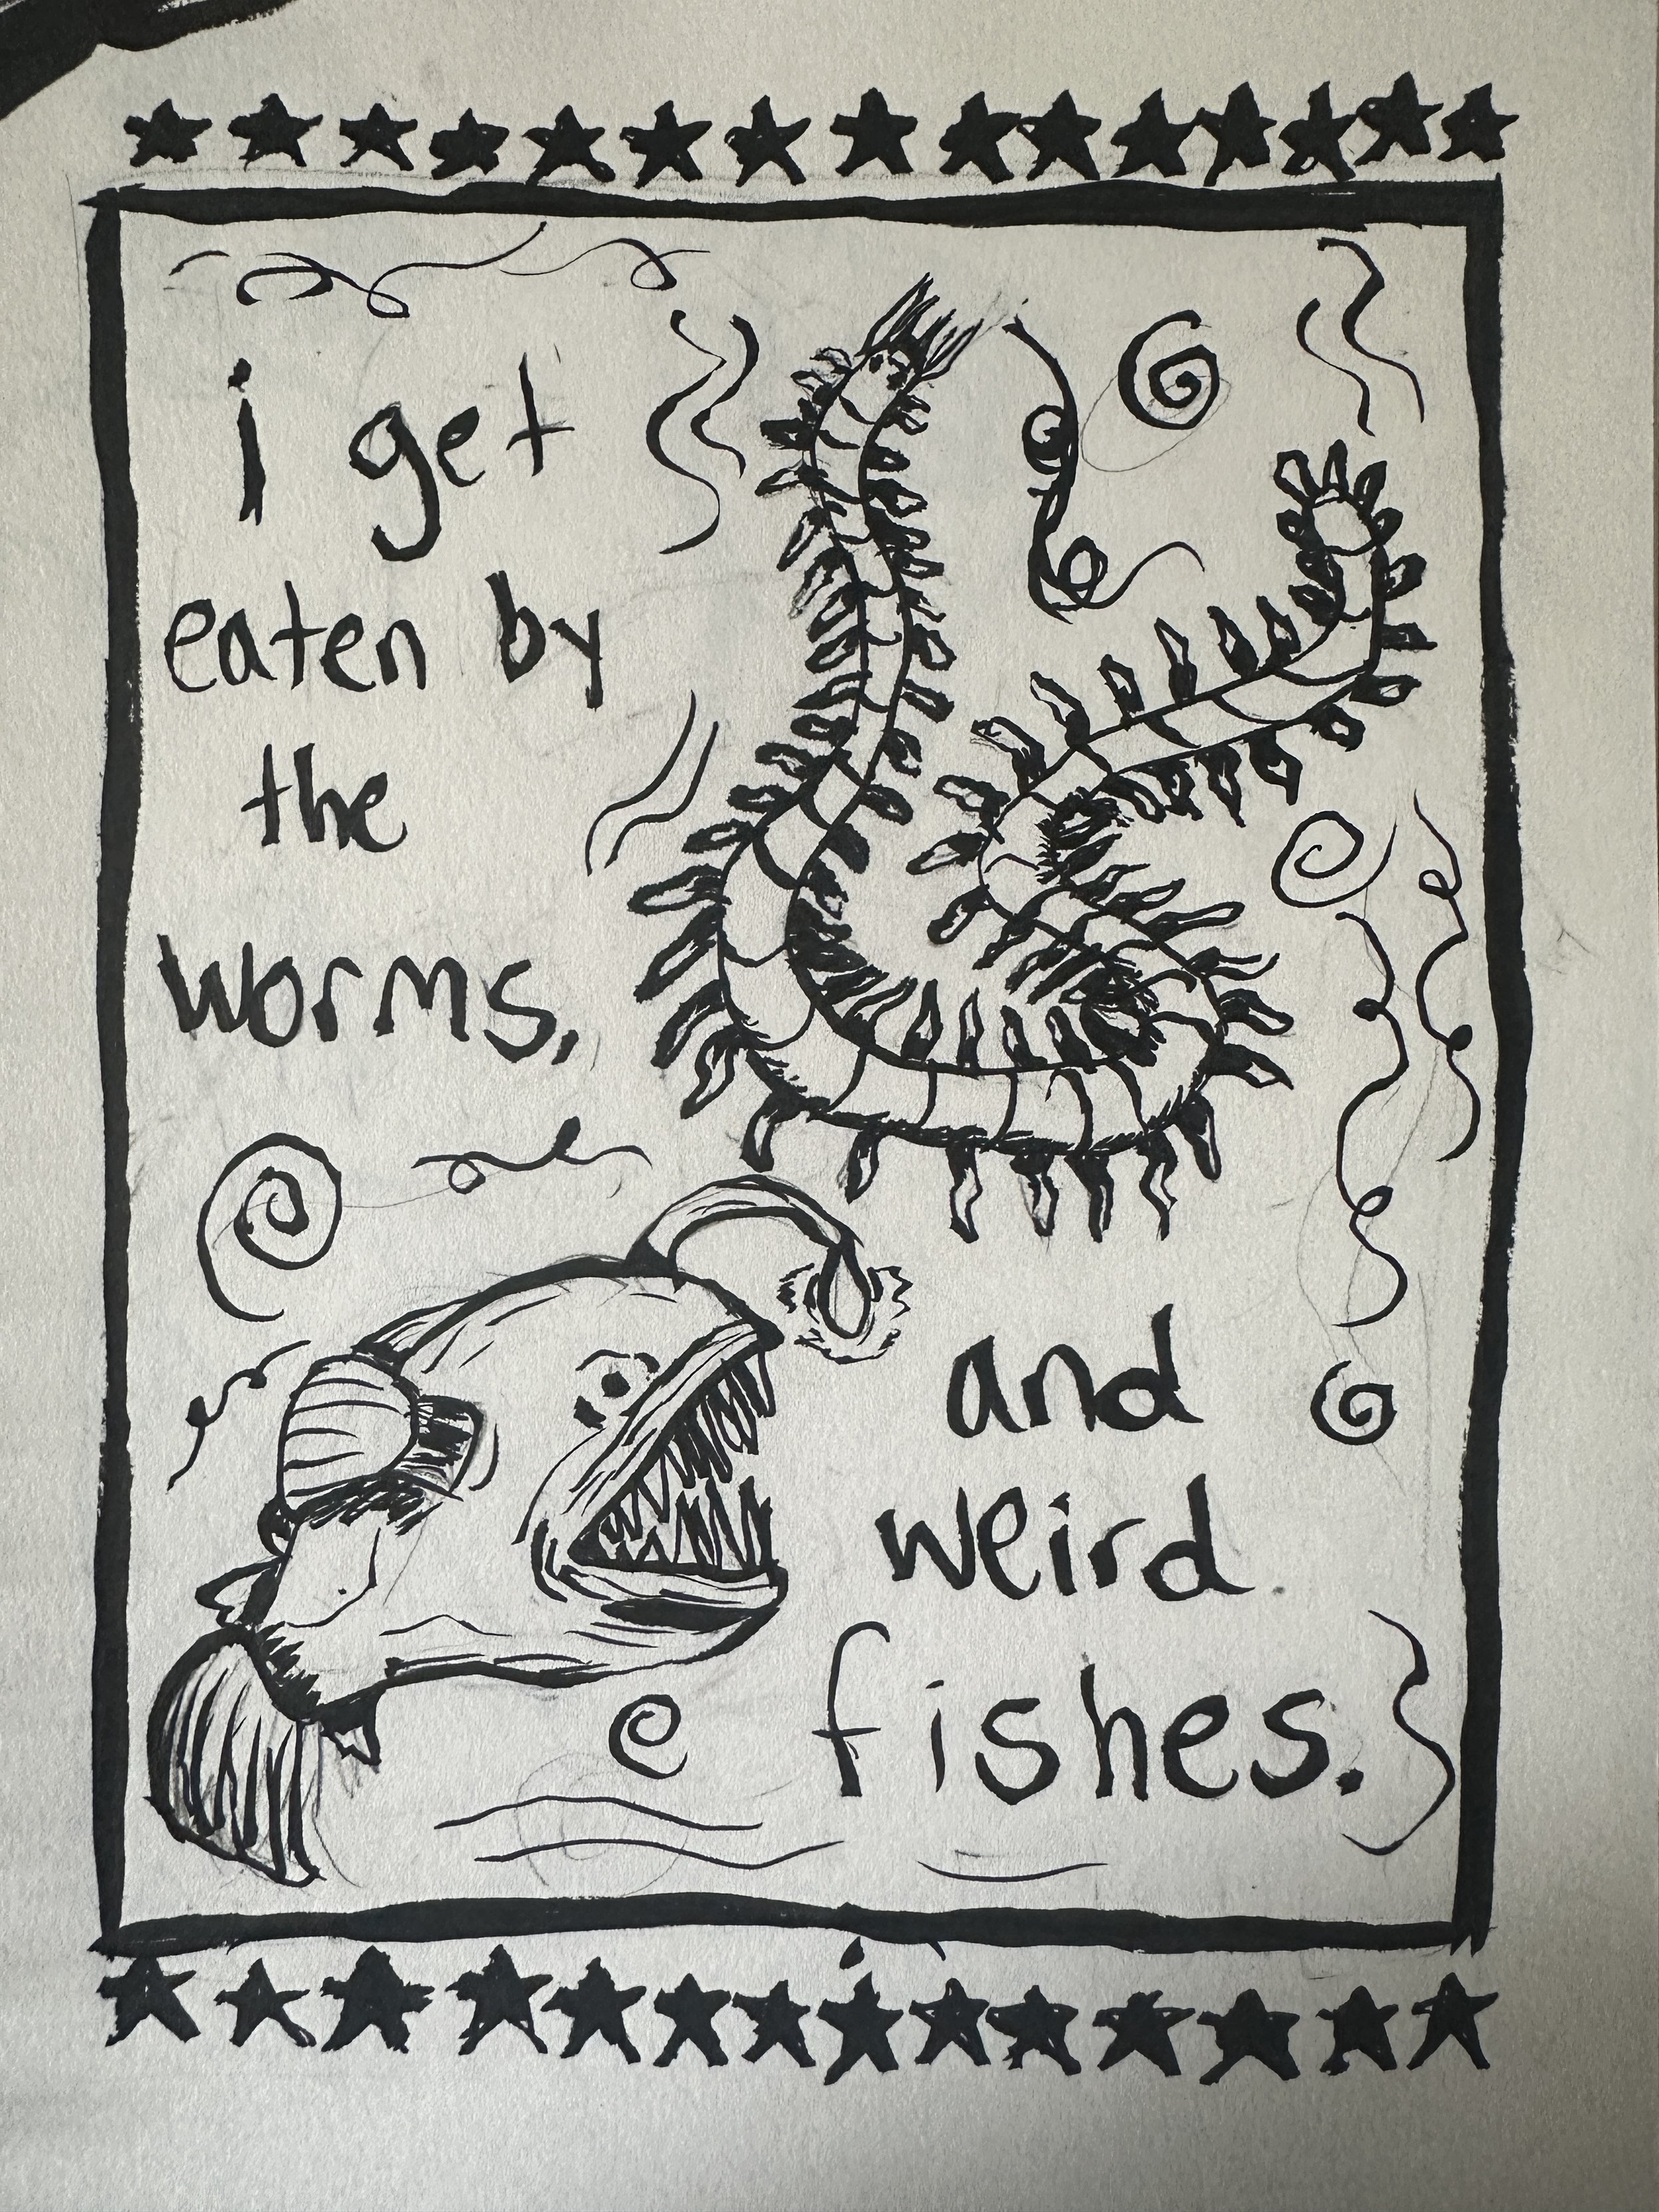 i get
eaten by
the
worms,
and
weird
fishes.